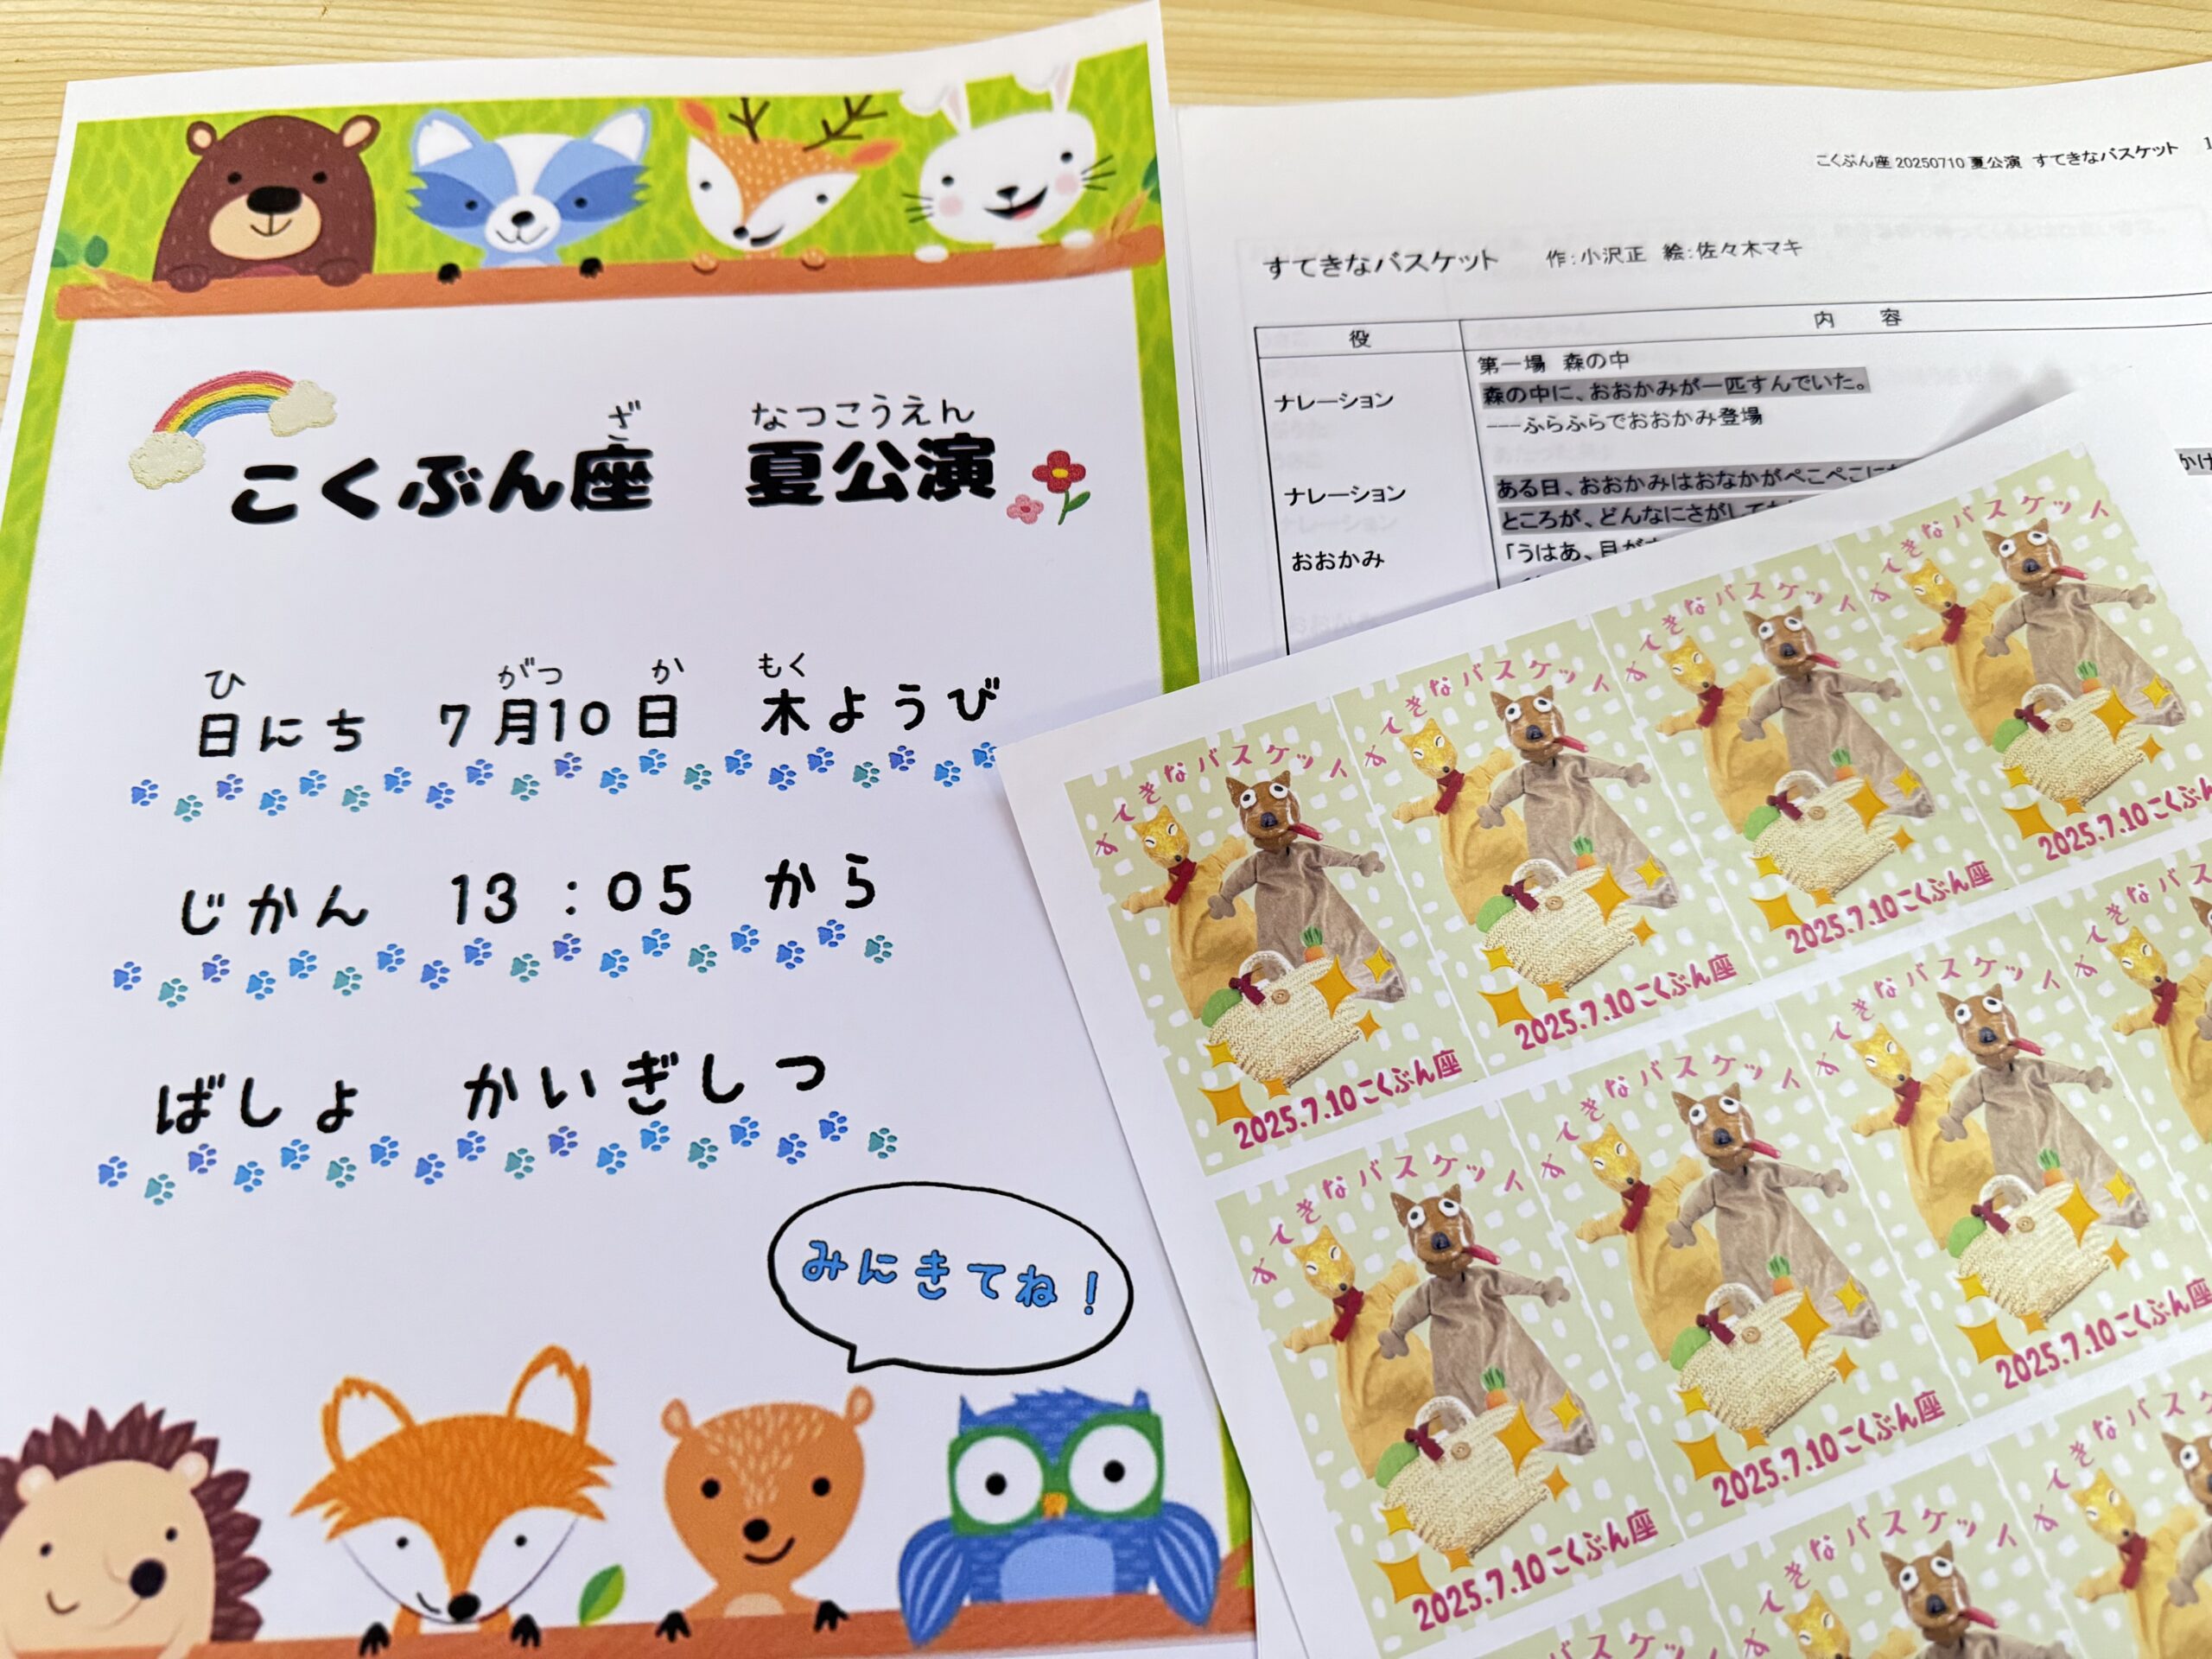 こくぶん座 夏公演
ざ なつこうえん
日にち 7月10日 木ようび
ひ がつ か もく
じかん 13:05 から
ばしょ かいぎしつ
みにきてね!
こくぶん座 20250710 夏公演 すてきなバスケット 1
すてきなバスケット 作:小沢正 絵:佐々木マキ
役 内 容
第一場 森の中
ナレーション 森の中に、おおかみが一匹すんでいた。
---ふらふらでおおかみ登場
ナレーション ある日、おおかみはおなかがぺこぺこに
ところが、どんなにさがして
おおかみ 「うはあ、目が
すてきなバスケット
2025.7.10こくぶん座
すてきなバスケット
2025.7.10こくぶん座
すてきなバスケット
2025.7.10こくぶん座
すてきなバスケット
2025.7.10こくぶ
すてきなバスケット
2025.7.10こくぶん座
すてきなバスケット
2025.7.10こくぶん座
すてきなバスケット
2025.7.10こくぶん座
すてきなバス
すてきなバス
きなバスケット
バスケッ